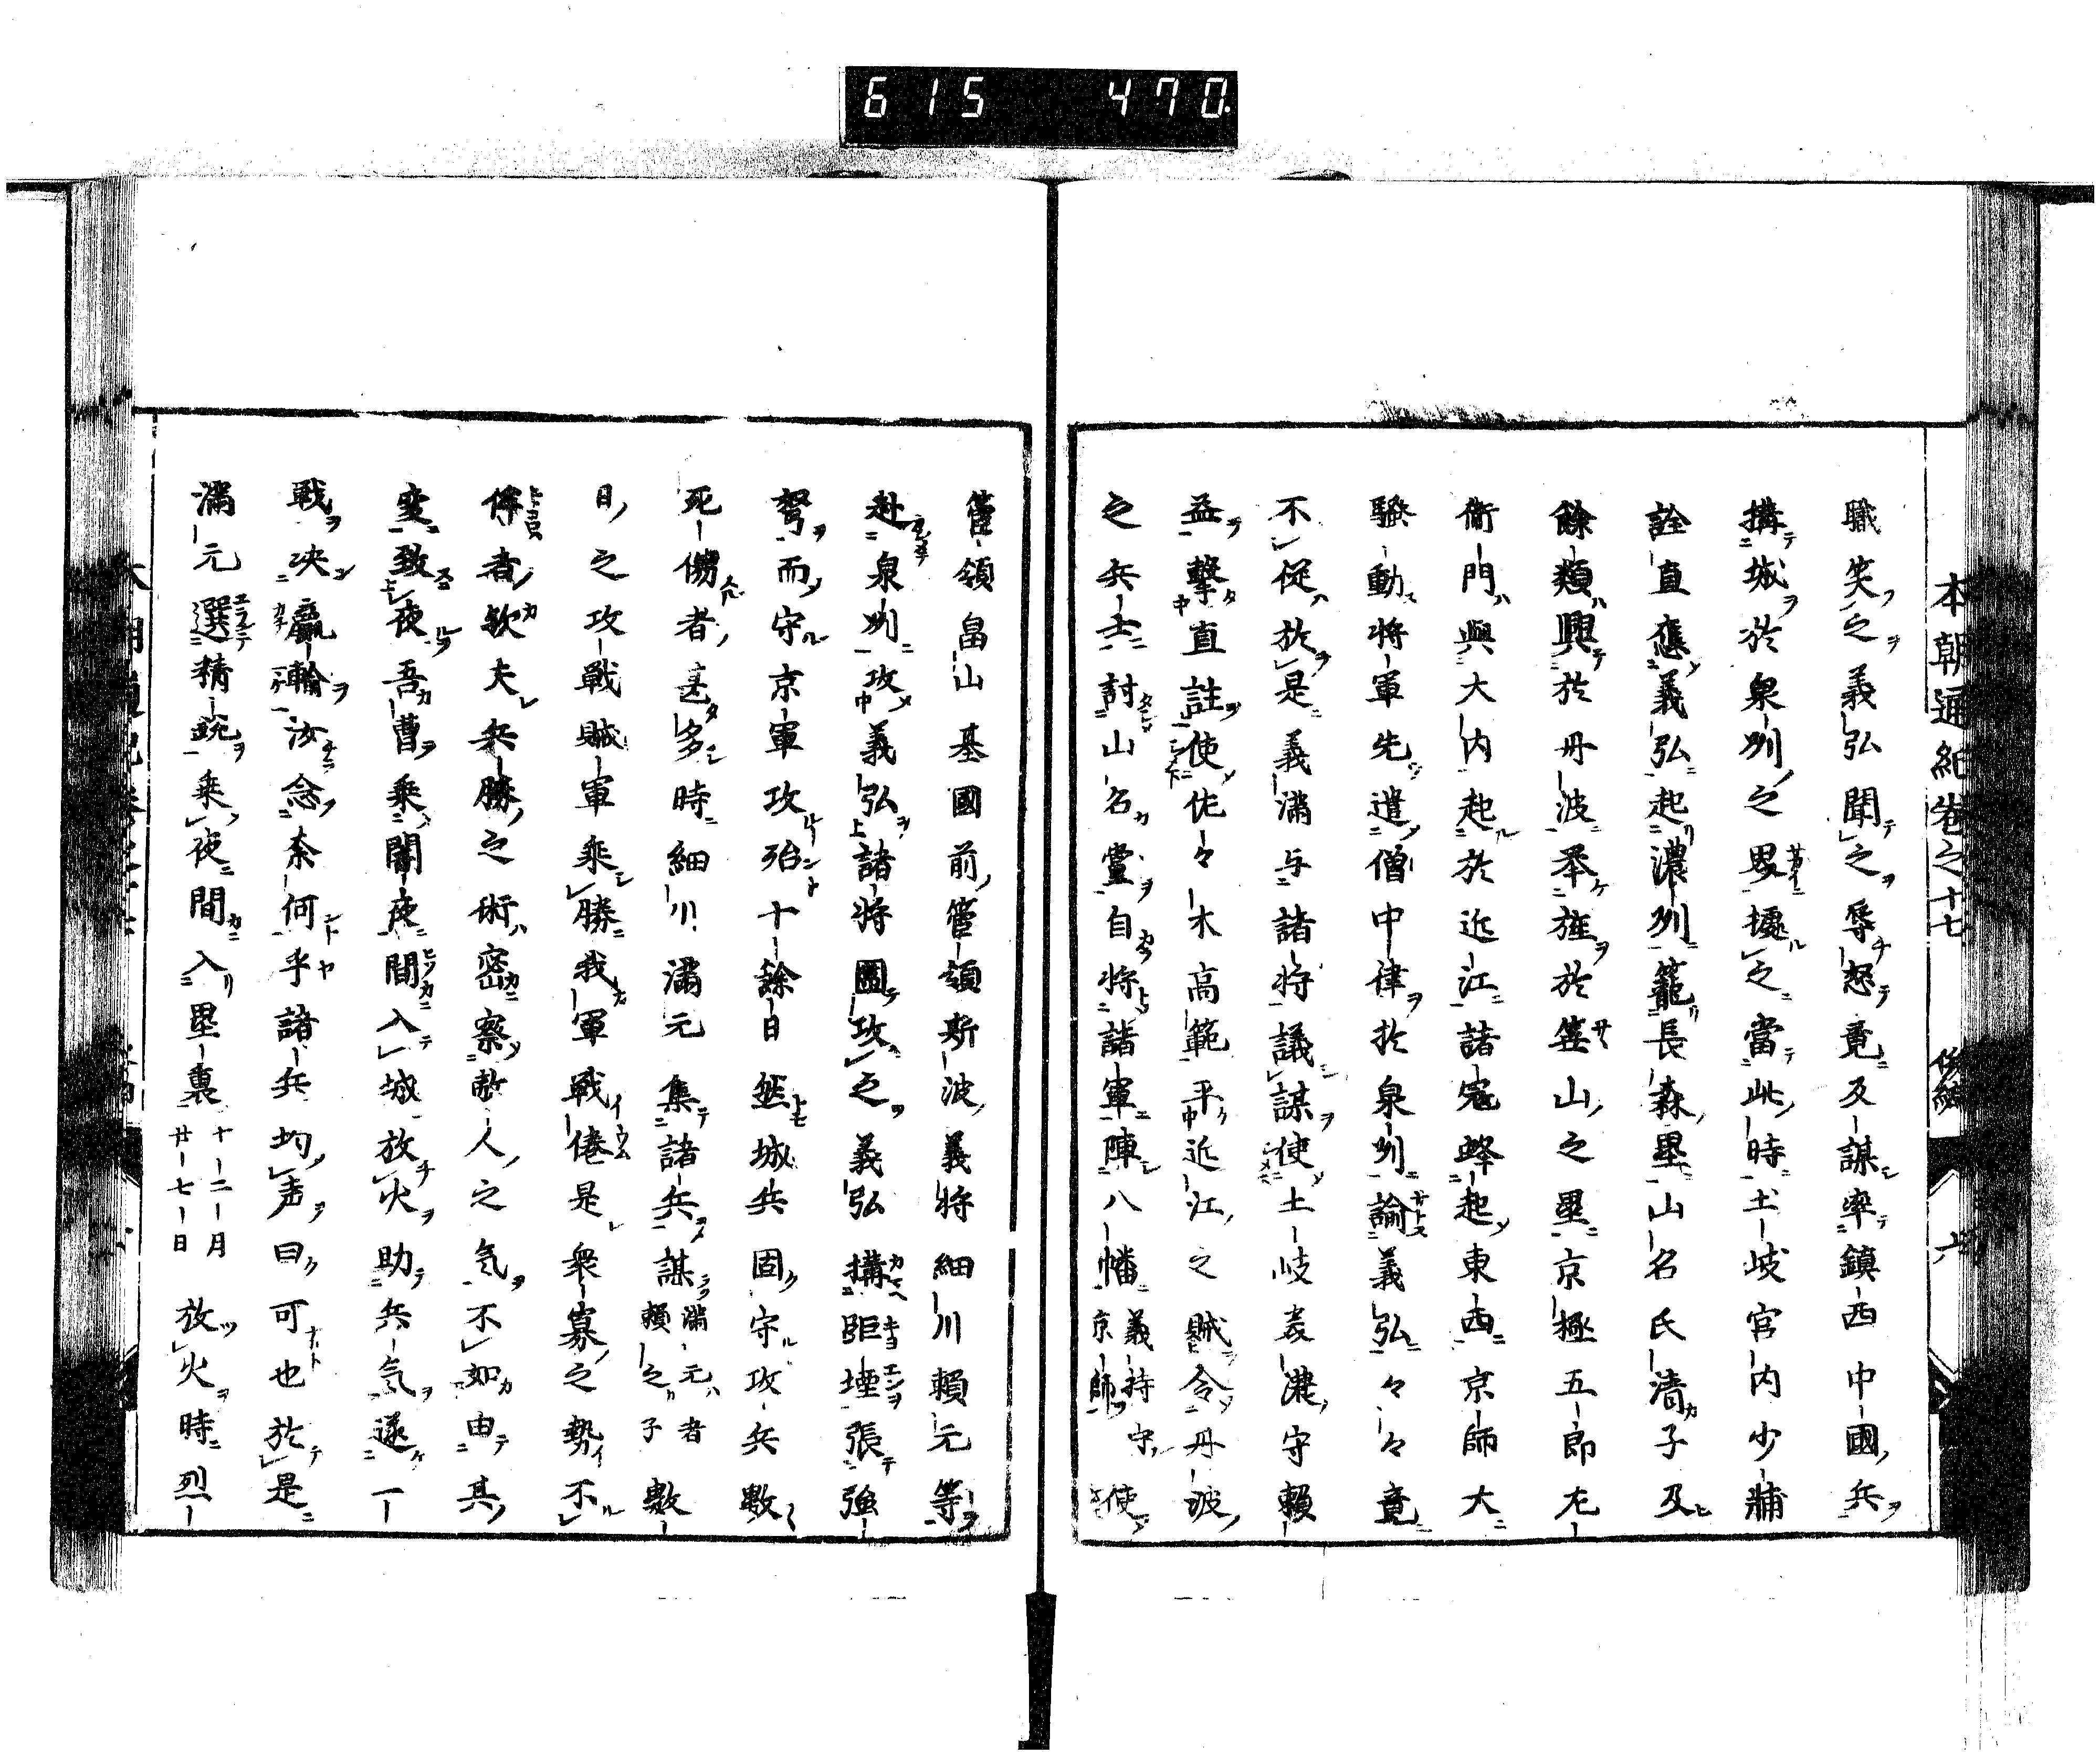 615 470.
本朝通紀巻之十七 後編 六
職笑之義弘聞之辱怒竟及謀率鎮西中國兵
搆城於泉刕之界據之當此時土岐宮内少輔
詮直應義弘起濃刕籠長森壘山名氏清子及
餘類興於丹波举旌於笹山之壘京極五郎左
衛門與大内起於近江諸冦蜂起東西京師大
騒動将軍先遣僧中律於泉刕論義弘々々竟
不従於是義満与諸将議謀使土岐美濃守頼
益撃直詮使佐々木高範平近江之賊令丹波
之兵士討山名黨自将諸軍陣八幡義持守京師使
管領畠山基國前管領斯波義将細川頼元等
赴泉刕攻義弘諸将圍攻之義弘搆距堙張強
弩而守京軍攻殆十餘日然城兵固守攻兵數
死傷者甚多時細川満元集諸兵謀満元者頼之子數
日之攻戰賊軍乘勝我軍戰倦是衆寡之勢不
侔者欤夫兵勝之術密察敵人之気不如由其
変致夜吾曹乗闇夜間入城放火助兵気遂一
戰决贏輸汝念奈何乎諸兵均声曰可也於是
満元選精鋭乗夜間入壘裏十二月廿七日放火時烈